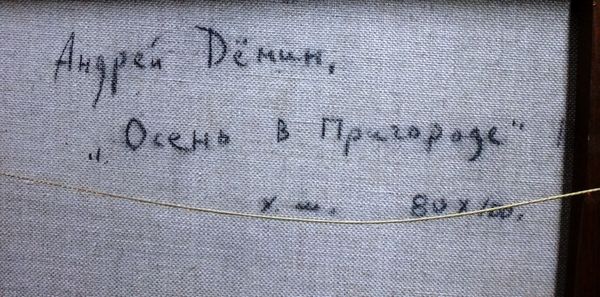 Андрей Дёмин,
„Осень в Пригороде"
х.м. 80х100.